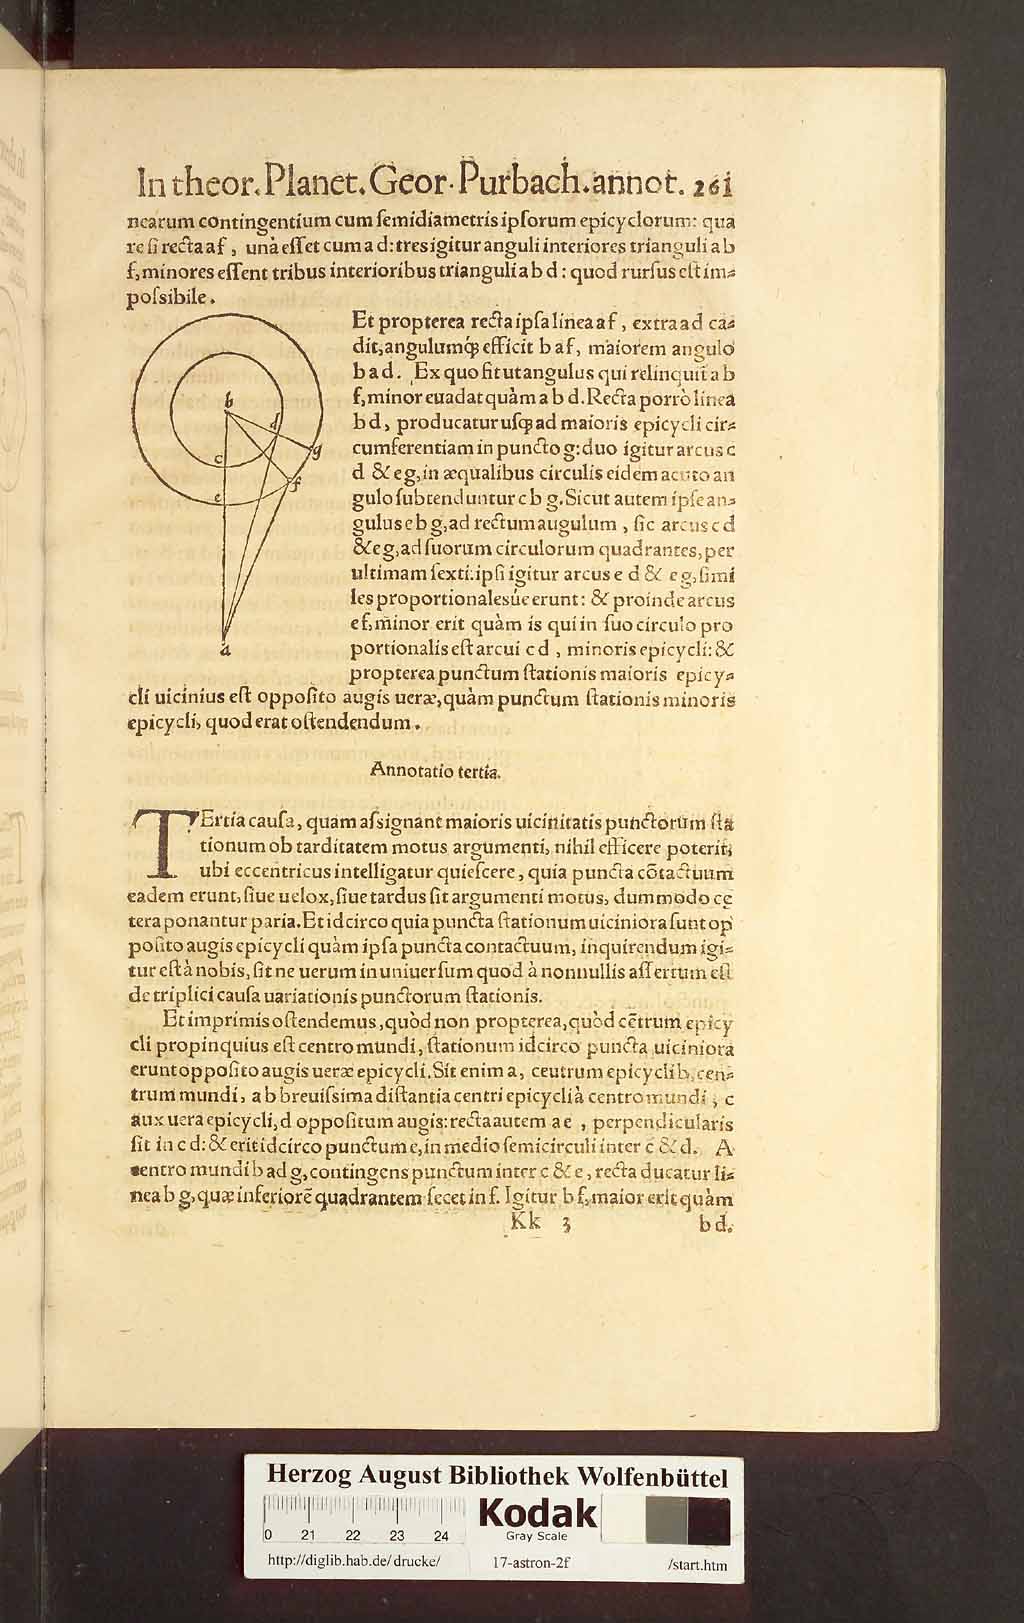 In theor. Planet. Geor. Purbach. annot. 261
nearum contingentium cum semidiametris ipsorum epicyclorum: qua
re si recta a f, unà esset cum a d: tres igitur anguli interiores trianguli a b
f, minores essent tribus interioribus trianguli a b d: quod rursus est im⸗
possibile.
Et propterea recta ipsa linea a f, extra a d ca⸗
dit, angulumq́; efficit b a f, maiorem angulo
b a d. Ex quo fit ut angulus qui relinquit̃ a b
f, minor euadat quàm a b d. Recta porrò linea
b d, producatur usq; ad maioris epicycli cir⸗
cumferentiam in puncto g: duo igitur arcus c
d & e g, in æqualibus circulis eidem acuto an
gulo subtenduntur c b g. Sicut autem ipse an⸗
gulus e b g, ad rectum augulum, sic arcus c d
& e g, ad suorum circulorum quadrantes, per
ultimam sexti: ipsi igitur arcus e d & e g, simi
les proportionalesúe erunt: & proinde arcus
e f, minor erit quàm is qui in suo circulo pro
portionalis est arcui c d, minoris epicycli: &
propterea punctum stationis maioris epicy⸗
cli uicinius est opposito augis ueræ, quàm punctum stationis minoris
epicycli, quod erat ostendendum.
b
d
g
c
f
e
a
Annotatio tertia.
TErtia causa, quam assignant maioris uicinitatis punctorum sta
tionum ob tarditatem motus argumenti, nihil efficere poterit,
ubi eccentricus intelligatur quiescere, quia puncta cõtactuum
eadem erunt, siue uelox, siue tardus sit argumenti motus, dummodo cę
tera ponantur paria. Et idcirco quia puncta stationum uiciniora sunt op
posito augis epicycli quàm ipsa puncta contactuum, inquirendum igi⸗
tur est à nobis, sit ne uerum in uniuersum quod à nonnullis assertum est
de triplici causa uariationis punctorum stationis.
Et imprimis ostendemus, quòd non propterea, quòd cẽtrum epicy
cli propinquius est centro mundi, stationum idcirco puncta uiciniora
erunt opposito augis ueræ epicycli. Sit enim a, ceutrum epicycli b, cen⸗
trum mundi, a b breuissima distantia centri epicycli à centro mundi, c
aux uera epicycli, d oppositum augis: recta autem a e, perpendicularis
sit in c d: & erit idcirco punctum e, in medio semicirculi inter c & d. A
centro mundi b ad g, contingens punctum inter c & e, recta ducatur li⸗
nea b g, quæ inferiorẽ quadrantem secet in f. Igitur b f, maior erit quàm
Kk 3 b d.
Herzog August Bibliothek Wolfenbüttel
0 21 22 23 24
Kodak
Gray Scale
http://diglib.hab.de/drucke/ 17-astron-2f /start.htm